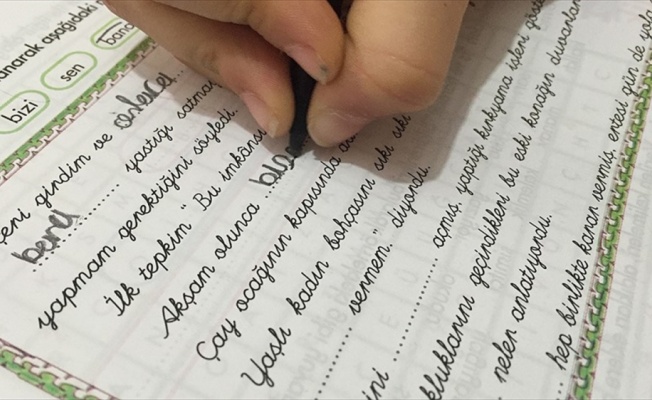 anarak aşağıdaki
bizi sen bana
içeri girdim ve onlara
bana yastığı satma
yapmam gerektiğini söyledi.
İlk tepkim "Bu imkânsı
Akşam olunca
Çay ocağının kapısında
Yaşlı kadın bohçasını sıkı sıkı
vermem." diyordu.
açmış, yaptığı kırkyama işleri
geçindikleri bu eski konağın duvarları
neler anlatıyordu.
hep birlikte karar vermiş, ertesi gün de yola